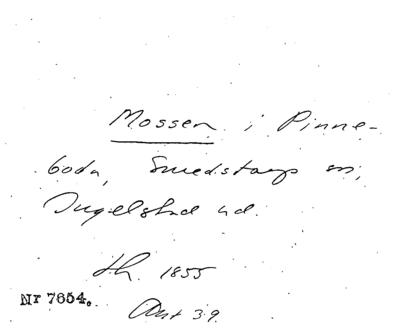 Mossen i Pinne-
boda, Smedstorps sn,
Ingelstad hd.
th. 1855
Nr 7654.
Ant 39.